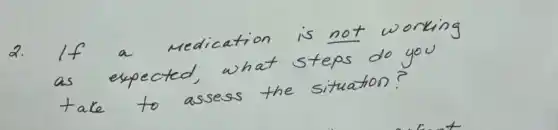 2. If a Medication is not working
as expected, what steps do you
take to assess the situation?